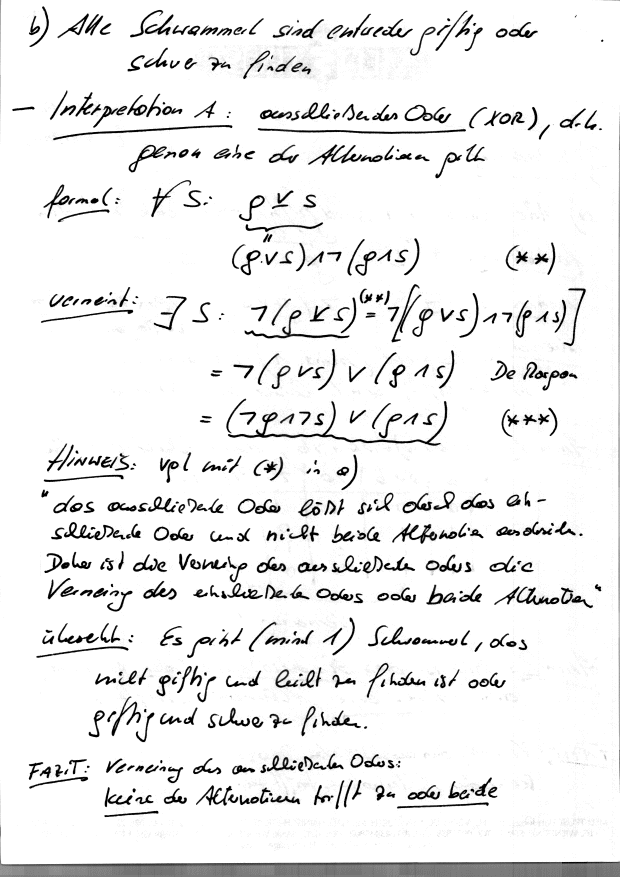 b) Alle Schwammerl sind entweder giftig oder
schwer zu finden
— Interpretation A: ausschließendes Oder (XOR), d.h.
genau eine der Alternativen gilt
formal: ∀ S: g ⊻ s
"
(g ∨ s) ∧ ¬ (g ∧ s) (**)
verneint: ∃ S: ¬(g ⊻ s) (**)= ¬[(g ∨ s) ∧ ¬(g ∧ s)]
= ¬(g ∨ s) ∨ (g ∧ s) De Morgan
= (¬g ∧ ¬s) ∨ (g ∧ s) (***)
HINWEIS: vgl mit (*) in a)
"das ausschließende Oder läßt sich durch das ein-
schließende Oder und nicht beide Alternativen ausdrücken.
Daher ist die Verneinung des ausschließenden Oders die
Verneinung des einschließenden Oders oder beide Alternativen"
übersetzt: Es gibt (mind 1) Schwammerl, das
nicht giftig und leicht zu finden ist oder
giftig und schwer zu finden.
FAZIT: Verneinung des ausschließenden Oders:
keine der Alternativen trifft zu oder beide